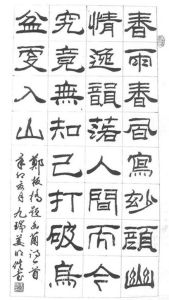 春雨春風寫妙顏幽
情逸韻落人間而今
究竟無知己打破烏
盆更入山
鄭板橋題幽蘭詩一首